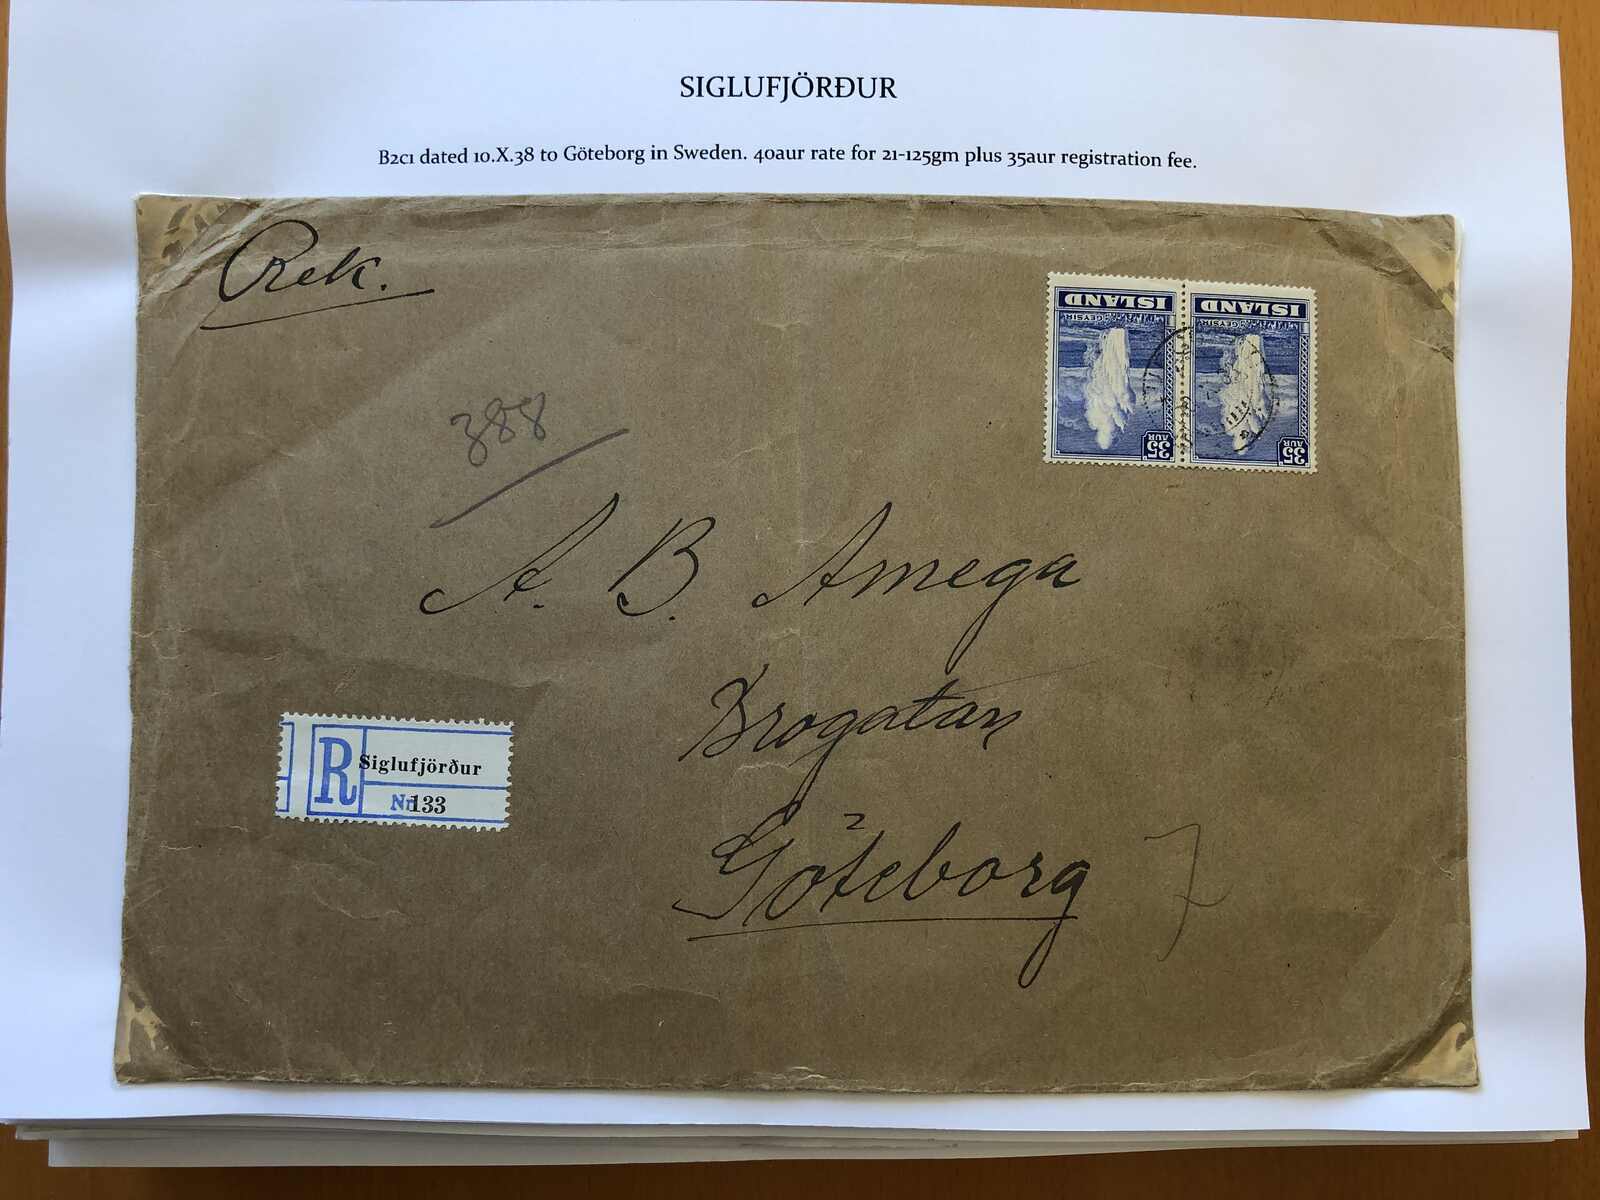 SIGLUFJÖRÐUR
B2c1 dated 10.X.38 to Göteborg in Sweden. 40aur rate for 21-125gm plus 35aur registration fee.
Rek.
ISLAND
GEYSIR
35
AUR
ISLAND
GEYSIR
35
AUR
388
A. B. Amega
Brogatan
2
Göteborg
7
R
Siglufjörður
Nr. 133